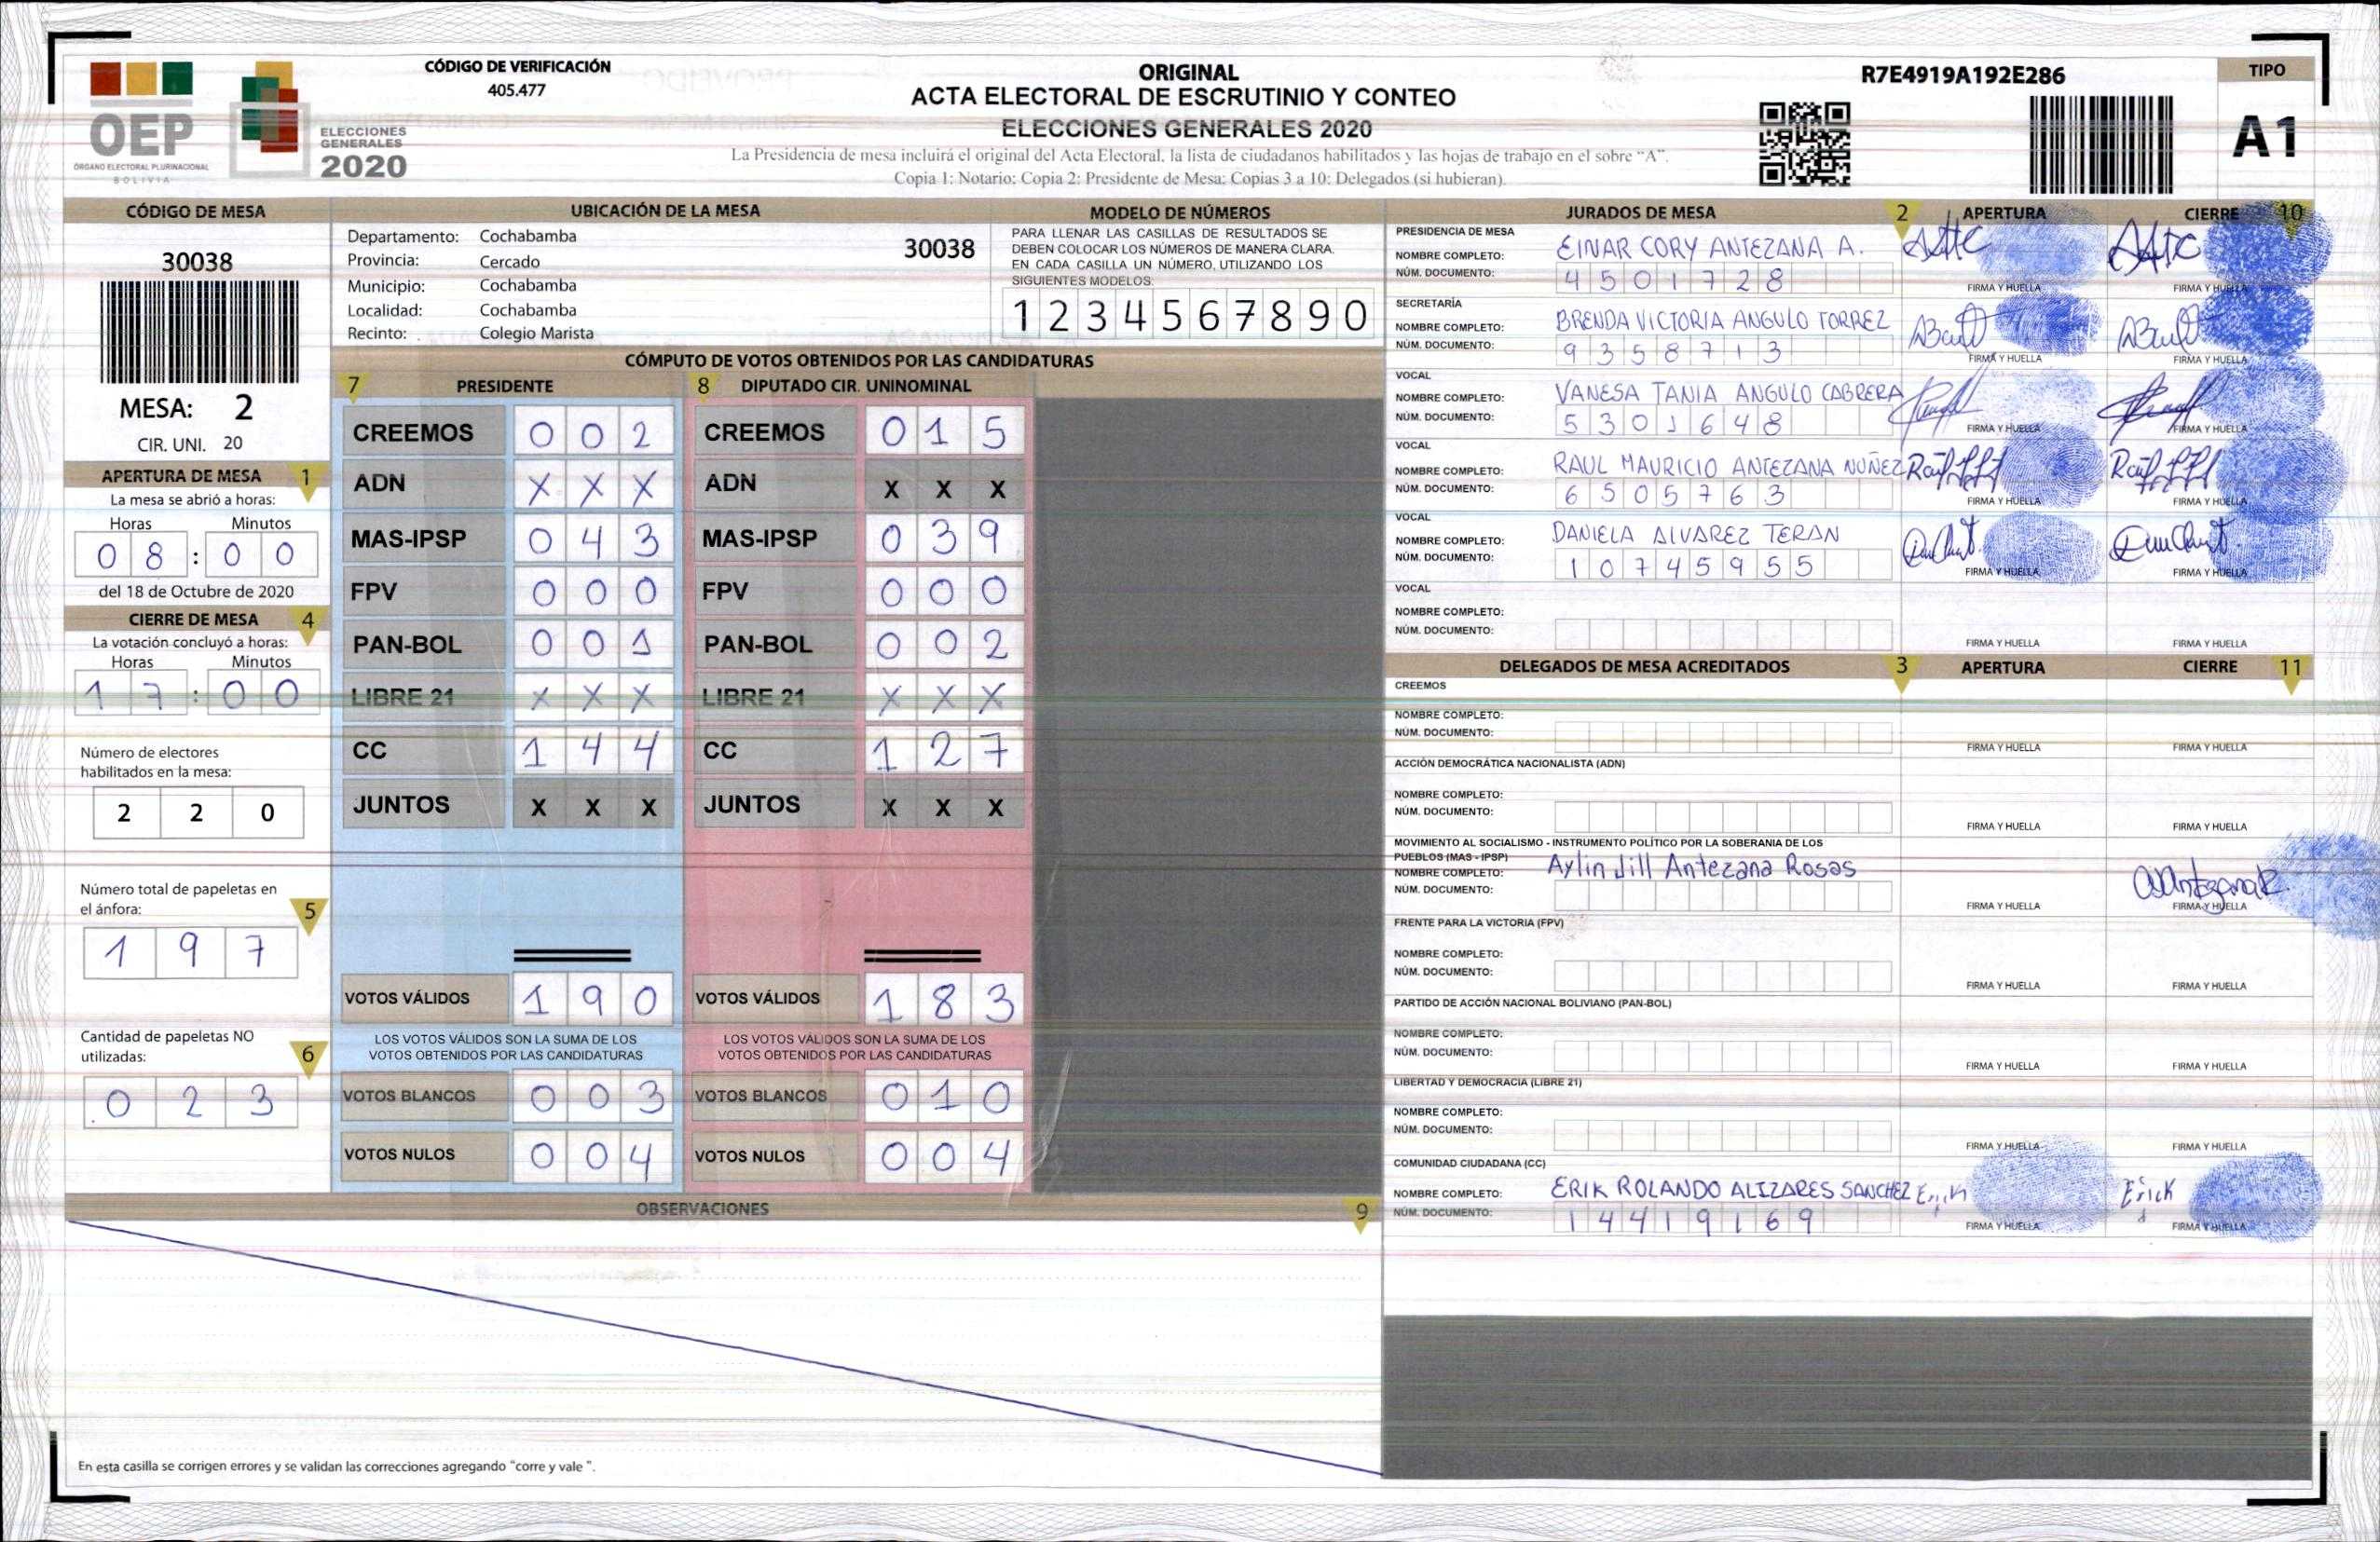 OEP
ÓRGANO ELECTORAL PLURINACIONAL
BOLIVIA
ELECCIONES
GENERALES
2020
CÓDIGO DE VERIFICACIÓN
405.477
ORIGINAL
ACTA ELECTORAL DE ESCRUTINIO Y CONTEO
ELECCIONES GENERALES 2020
La Presidencia de mesa incluirá el original del Acta Electoral, la lista de ciudadanos habilitados y las hojas de trabajo en el sobre "A".
Copia 1: Notario; Copia 2: Presidente de Mesa; Copias 3 a 10: Delegados (si hubieran).
R7E4919A192E286
TIPO
A1
CÓDIGO DE MESA
30038
MESA: 2
CIR. UNI. 20
APERTURA DE MESA 1
La mesa se abrió a horas:
Horas Minutos
08 : 00
del 18 de Octubre de 2020
CIERRE DE MESA 4
La votación concluyó a horas:
Horas Minutos
17 : 00
Número de electores
habilitados en la mesa:
2 2 0
Número total de papeletas en
el ánfora: 5
1 9 7
Cantidad de papeletas NO
utilizadas: 6
0 2 3
UBICACIÓN DE LA MESA
Departamento: Cochabamba 30038
Provincia: Cercado
Municipio: Cochabamba
Localidad: Cochabamba
Recinto: Colegio Marista
MODELO DE NÚMEROS
PARA LLENAR LAS CASILLAS DE RESULTADOS SE
DEBEN COLOCAR LOS NÚMEROS DE MANERA CLARA.
EN CADA CASILLA UN NÚMERO, UTILIZANDO LOS
SIGUIENTES MODELOS:
1 2 3 4 5 6 7 8 9 0
CÓMPUTO DE VOTOS OBTENIDOS POR LAS CANDIDATURAS
7 PRESIDENTE 8 DIPUTADO CIR. UNINOMINAL
CREEMOS 0 0 2 CREEMOS 0 1 5
ADN X X X ADN X X X
MAS-IPSP 0 4 3 MAS-IPSP 0 3 9
FPV 0 0 0 FPV 0 0 0
PAN-BOL 0 0 1 PAN-BOL 0 0 2
LIBRE 21 X X X LIBRE 21 X X X
CC 1 4 4 CC 1 2 7
JUNTOS X X X JUNTOS X X X
VOTOS VÁLIDOS 1 9 0 VOTOS VÁLIDOS 1 8 3
LOS VOTOS VÁLIDOS SON LA SUMA DE LOS LOS VOTOS VÁLIDOS SON LA SUMA DE LOS
VOTOS OBTENIDOS POR LAS CANDIDATURAS VOTOS OBTENIDOS POR LAS CANDIDATURAS
VOTOS BLANCOS 0 0 3 VOTOS BLANCOS 0 1 0
VOTOS NULOS 0 0 4 VOTOS NULOS 0 0 4
OBSERVACIONES 9
En esta casilla se corrigen errores y se validan las correcciones agregando "corre y vale ".
JURADOS DE MESA 2 APERTURA CIERRE 10
PRESIDENCIA DE MESA
NOMBRE COMPLETO: EINAR CORY ANTEZANA A.
NÚM. DOCUMENTO: 4501728
FIRMA Y HUELLA FIRMA Y HUELLA
SECRETARÍA
NOMBRE COMPLETO: BRENDA VICTORIA ANGULO TORREZ
NÚM. DOCUMENTO: 9358713
FIRMA Y HUELLA FIRMA Y HUELLA
VOCAL
NOMBRE COMPLETO: VANESA TANIA ANGULO CABRERA
NÚM. DOCUMENTO: 5301648
FIRMA Y HUELLA FIRMA Y HUELLA
VOCAL
NOMBRE COMPLETO: RAUL MAURICIO ANTEZANA NUÑEZ
NÚM. DOCUMENTO: 6505763
FIRMA Y HUELLA FIRMA Y HUELLA
VOCAL
NOMBRE COMPLETO: DANIELA ALVAREZ TERAN
NÚM. DOCUMENTO: 10745955
FIRMA Y HUELLA FIRMA Y HUELLA
VOCAL
NOMBRE COMPLETO:
NÚM. DOCUMENTO:
FIRMA Y HUELLA FIRMA Y HUELLA
DELEGADOS DE MESA ACREDITADOS 3 APERTURA CIERRE 11
CREEMOS
NOMBRE COMPLETO:
NÚM. DOCUMENTO:
FIRMA Y HUELLA FIRMA Y HUELLA
ACCIÓN DEMOCRÁTICA NACIONALISTA (ADN)
NOMBRE COMPLETO:
NÚM. DOCUMENTO:
FIRMA Y HUELLA FIRMA Y HUELLA
MOVIMIENTO AL SOCIALISMO - INSTRUMENTO POLÍTICO POR LA SOBERANIA DE LOS
PUEBLOS (MAS - IPSP)
NOMBRE COMPLETO: Aylin Jill Antezana Rosas
NÚM. DOCUMENTO:
FIRMA Y HUELLA FIRMA Y HUELLA
FRENTE PARA LA VICTORIA (FPV)
NOMBRE COMPLETO:
NÚM. DOCUMENTO:
FIRMA Y HUELLA FIRMA Y HUELLA
PARTIDO DE ACCIÓN NACIONAL BOLIVIANO (PAN-BOL)
NOMBRE COMPLETO:
NÚM. DOCUMENTO:
FIRMA Y HUELLA FIRMA Y HUELLA
LIBERTAD Y DEMOCRACIA (LIBRE 21)
NOMBRE COMPLETO:
NÚM. DOCUMENTO:
FIRMA Y HUELLA FIRMA Y HUELLA
COMUNIDAD CIUDADANA (CC)
NOMBRE COMPLETO: ERIK ROLANDO ALIZARES SANCHEZ Erick Erick
NÚM. DOCUMENTO: 14419169
FIRMA Y HUELLA FIRMA Y HUELLA